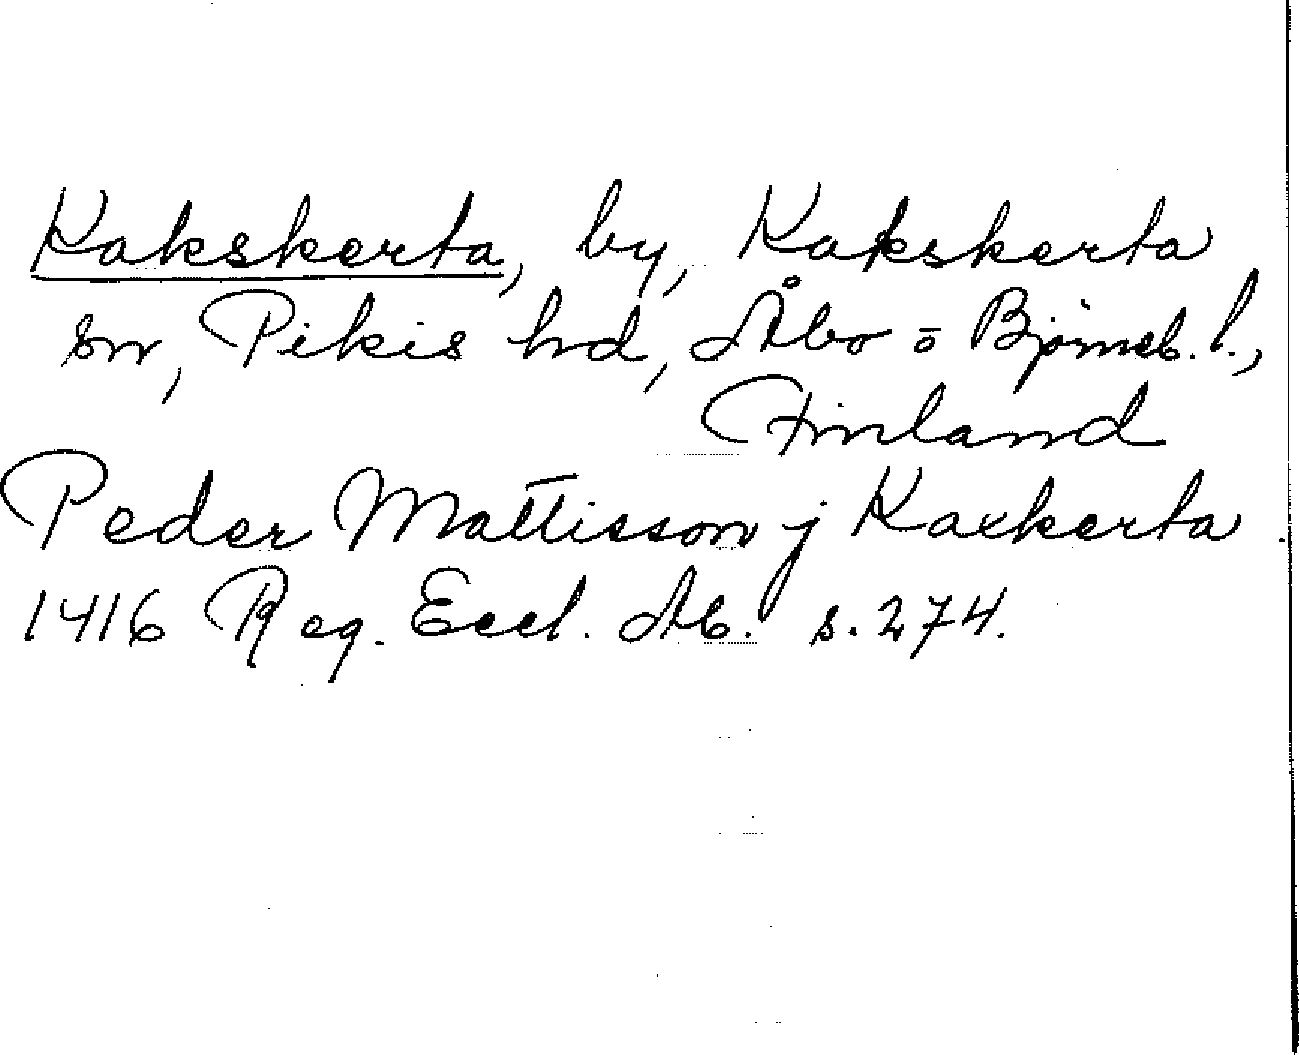 Kakskerta, by, Kakskerta
sn, Pikis hd, Åbo o Björneb. l.,
Finland
Peder Mattisson j Kaxkerta
1416 Reg. Eccl. Ab. s. 274.